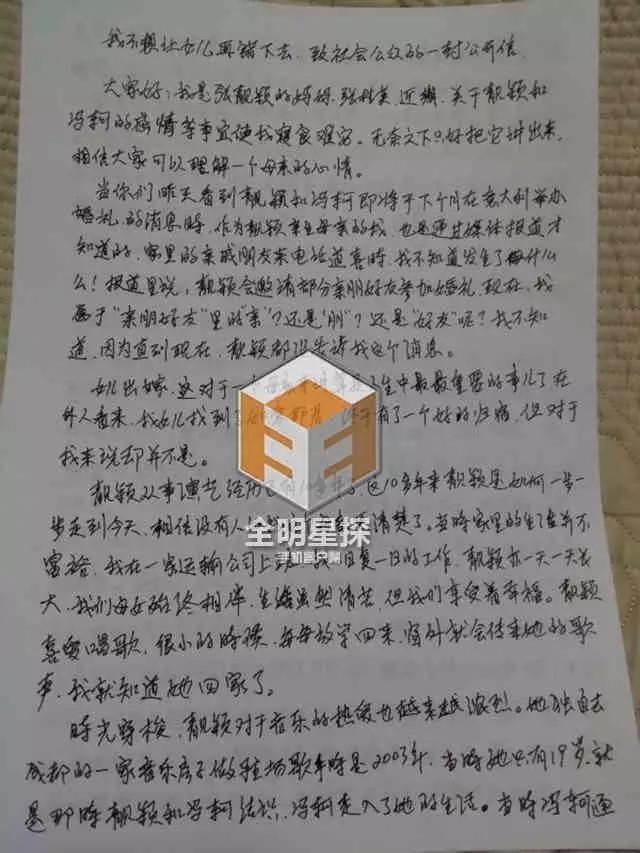 我不想让女儿再错下去，致社会公众的一封公开信
大家好：我是张靓颖的妈妈，张桂英，近期，关于靓颖和
冯轲的感情等事宜使我寝食难安。无奈之下只好把它讲出来，
相信大家可以理解一个母亲的心情。
当你们昨天看到靓颖和冯轲即将于下个月在意大利举办
婚礼的消息时，作为靓颖亲生母亲的我，也是通过媒体报道才
知道的，家里的亲戚朋友来电话道喜时，我不知道发生了什么
么！报道里说，靓颖会邀请部分亲朋好友参加婚礼，现在，我
属于"亲朋好友"里的"亲"？还是"朋"？还是"好友"呢？我不知
道，因为直到现在，靓颖都没告诉我这个消息。
女儿出嫁，这对于一个母亲来说算是一生中最最重要的事儿了在
外人看来，我女儿找到了 有了一个好的归宿，但对于
我来说却并不是。
靓颖从事演艺经历已有10多年，这10多年来靓颖是如何一步一
步走到今天，相信没有人 清楚了。当时家里的生活并不
富裕，我在一家运输公司上班，我日复一日的工作，靓颖亦一天一天长
大，我们母女始终相伴，生活虽然清苦，但我们享受着幸福。靓颖
喜爱唱歌，很小的时候，每每放学回来，窗外就会传来她的歌
声，我就知道她回家了。
时光穿梭，靓颖对于音乐的热爱也越来越浓烈。她独自去
成都的一家音乐房子做驻场歌手时是2003年，当时她只有19岁，就
是那时靓颖和冯轲结识，冯轲走入了她的生活。当时冯轲通
全明星探
手机客户端